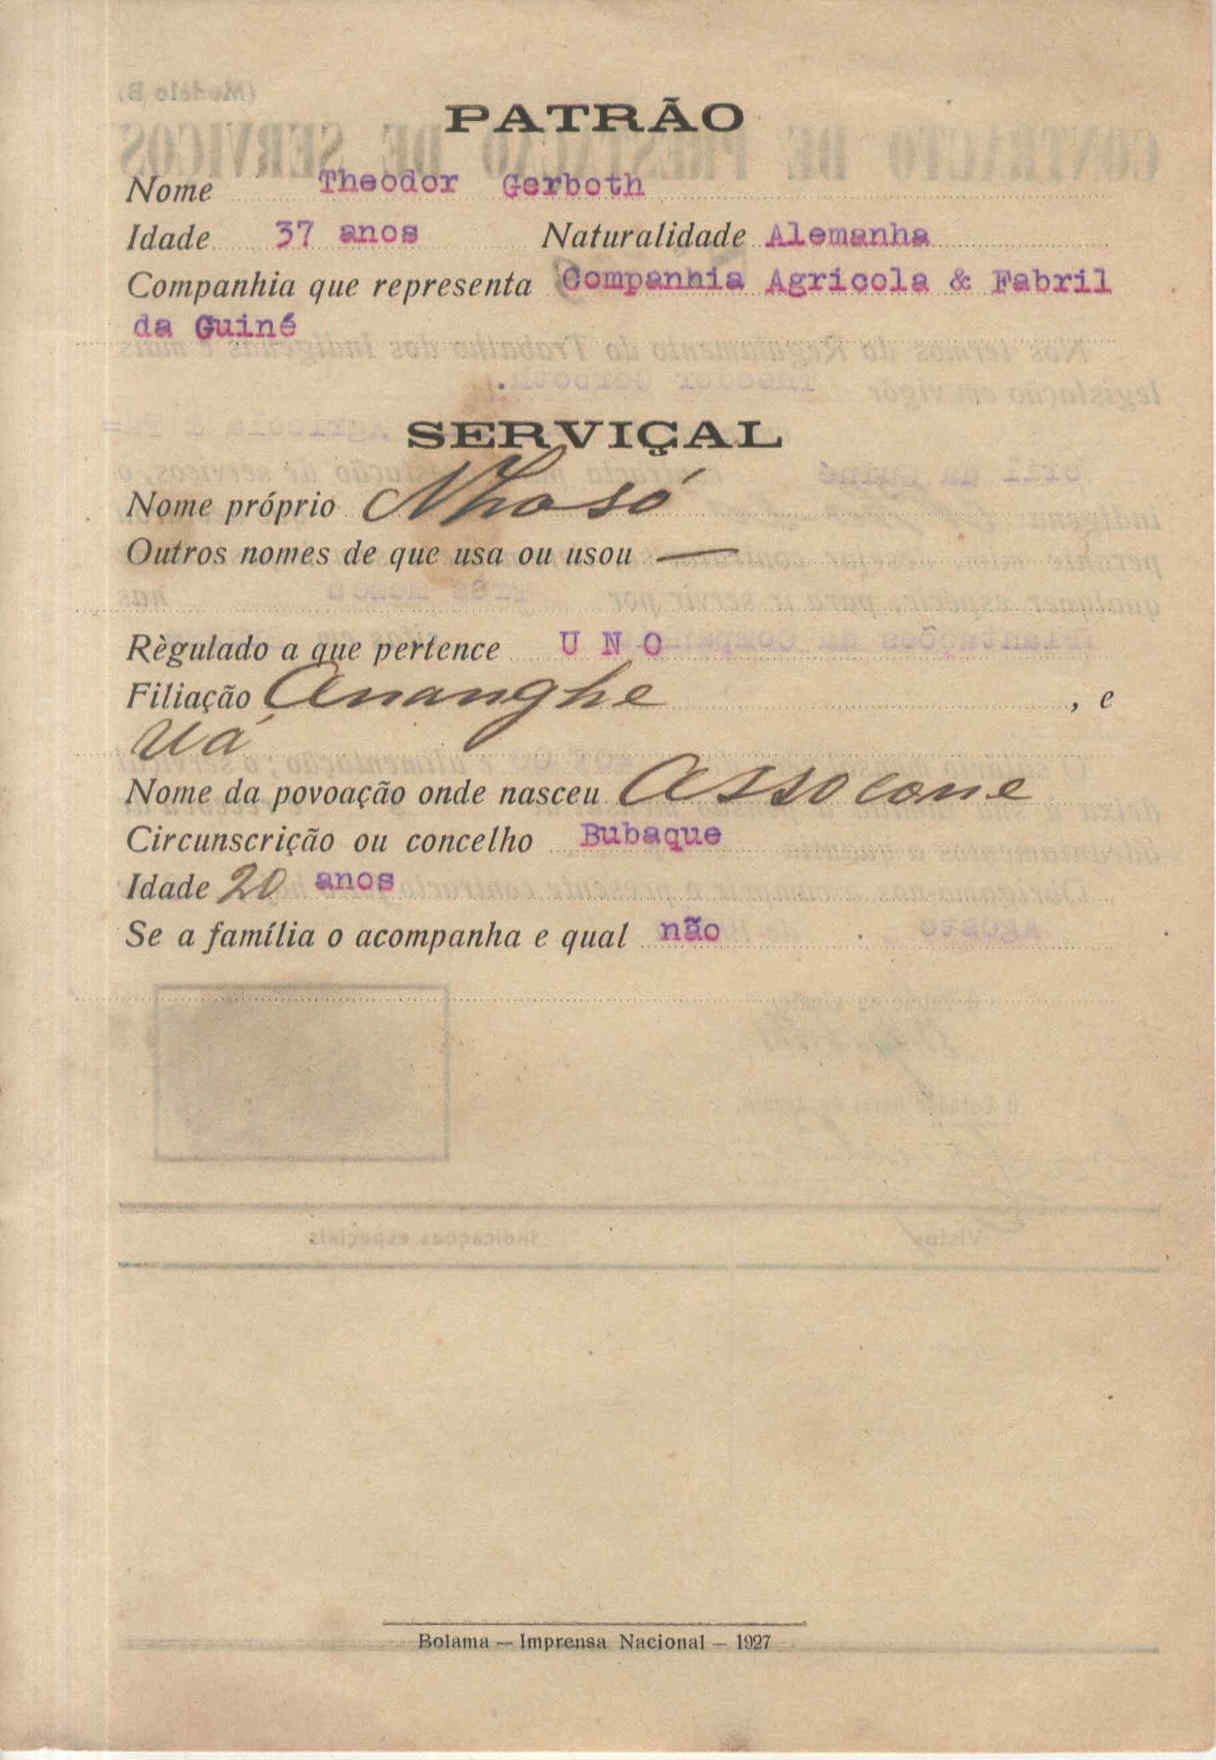 PATRÃO
Nome Theodor Gerboth
Idade 37 anos Naturalidade Alemanha
Companhia que representa Companhia Agricola & Fabril
da Guiné
SERVIÇAL
Nome próprio Nhosó
Outros nomes de que usa ou usou —
Règulado a que pertence U N O
Filiação Ananghe, e
Uá
Nome da povoação onde nasceu Assocone
Circunscrição ou concelho Bubaque
Idade 20 anos
Se a família o acompanha e qual não
Bolama — Imprensa Nacional — 1927